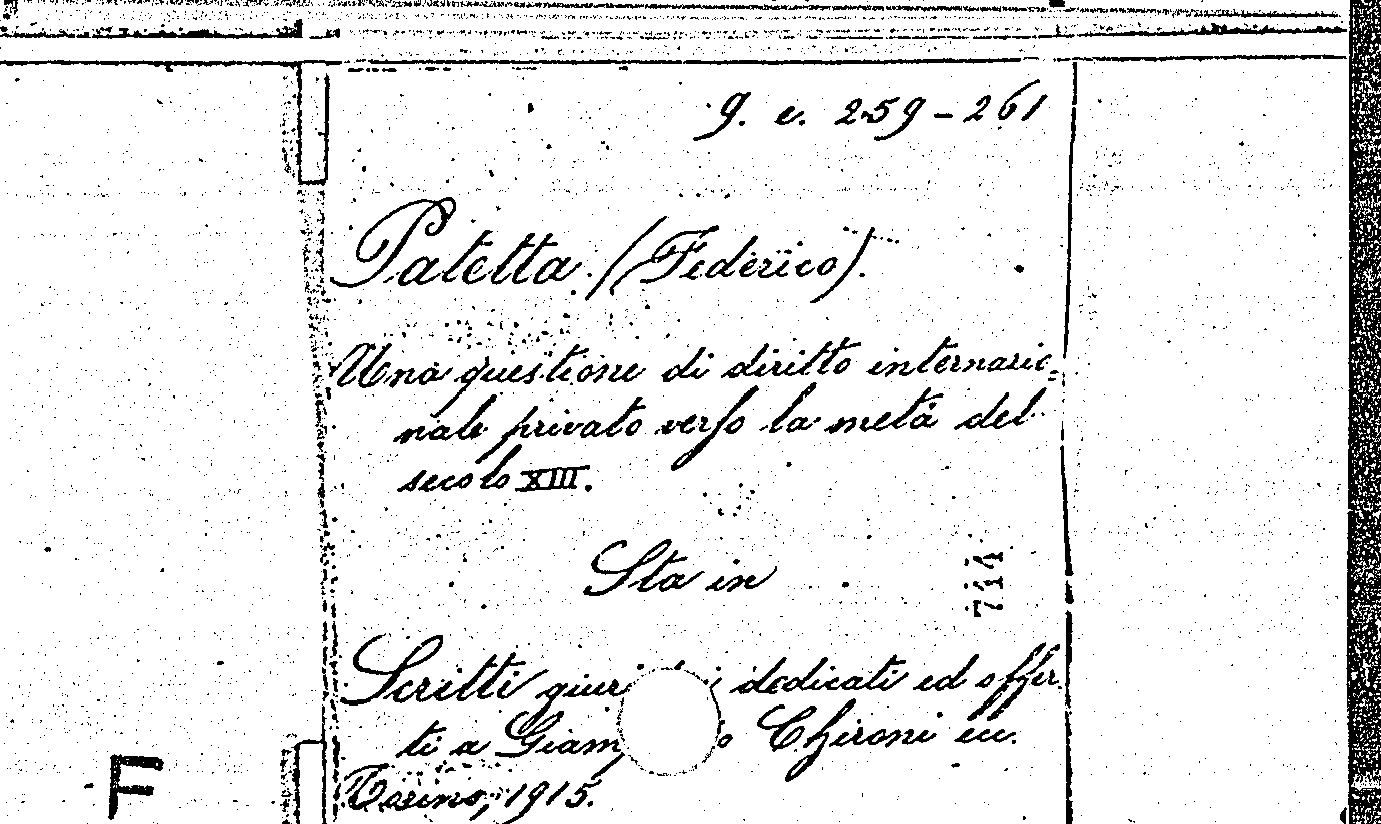 g. e. 259-261
Patetta. (Federico).
Una questione di diritto internazio=
nale privato verso la metà del
secolo XIII.
Sta in
744
Scritti dedicati ed offer
ti a Chironi ecc.
Torino, 1915.
F